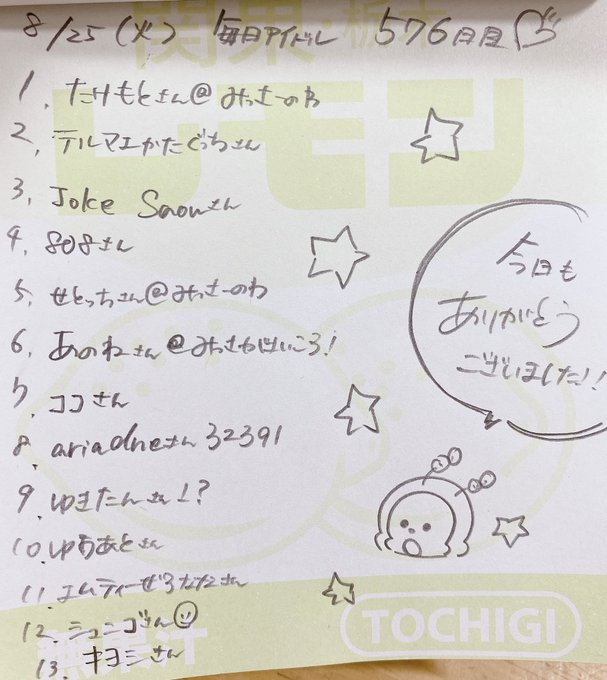 8/25(火) 毎日アイドル 576日目
1. たけもとさん@みっきーのわ
2. テルマエかたぐっちさん
3. Joke Saowさん
4. 808さん
5. せとっちさん@みっきーのわ
6. あのねさん@みっきかせいころ!
7. ココさん
8. ariadneさん32391
9. ゆきたんさん!?
10. ゆうあとさん
11. エムティーぜろななさん
12. シュニゴさん
13. キヨシさん
今日も
ありがとう
ございました!!
関東・栃木
レモン
TOCHIGI